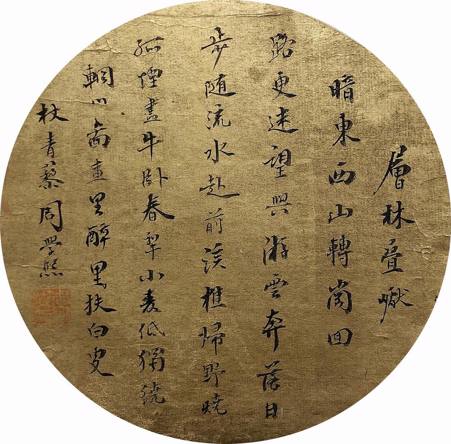 層林疊巘
暗東西山轉崗回
路更迷望與游雲奔落日
步隨流水赴前溪樵歸野燒
孤煙盡牛臥春犁小麥低獨繞
輞川啚畫里醉里扶白叟
杖青藜周學熙